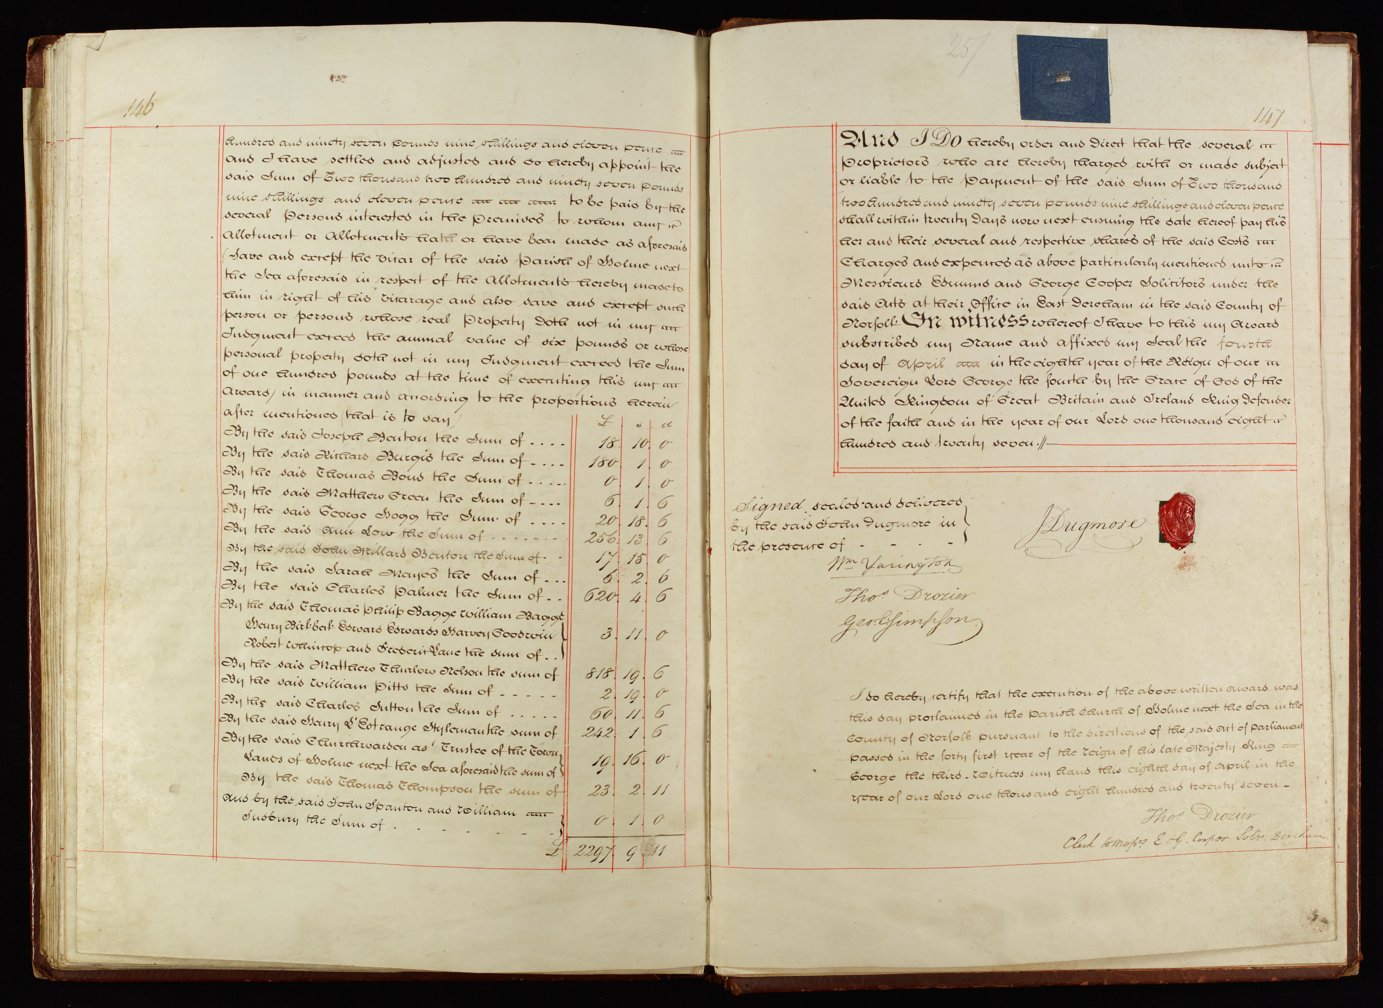 146
hundred and ninety seven pounds nine shillings and eleven pence
And I have settled and adjusted and do hereby appoint the
said Sum of Two thousand two hundred and ninety seven pounds
nine shillings and eleven pence to be paid by the
several Persons interested in the Premises to whom any
Allotment or Allotments hath or have been made as aforesaid
(Save and except the Vicar of the said Parish of Holme next
the Sea aforesaid in respect of the Allotments hereby made to
him in right of his Vicarage and also save and except such
person or persons whose real Property doth not in my
Judgment exceed the annual value of six pounds or whose
personal property doth not in my Judgment exceed the Sum
of one hundred pounds at the time of executing this my
Award) in manner and according to the proportions herein
after mentioned (that is to say
£ s d
By the said Joseph Benton the Sum of - - - - 18. 10. 0
By the said Richard Burgis the Sum of - - - - 180. 1. 0
By the said Thomas Bond the Sum of - - - - 0. 1. 0
By the said Matthew Green the Sum of - - - - 6. 1. 6
By the said George Hogg the Sum of - - - - 20. 18. 6
By the said Ann Low the Sum of - - - - - - - 256. 13. 6
By the said John Willard Benton the Sum of - - 17. 15. 0
By the said Sarah Mayes the Sum of - - - 5. 2. 6
By the said Charles Palmer the Sum of - - 620. 4. 6
By the said Thomas Philip Bagge William Bagge
Henry Birkbeck Edward Edwards Harvey Goodwin
Robert Winthrop and Frederic Lane the sum of - - 3. 11. 0
By the said Matthew Thurlow Nelson the sum of 818. 19. 6
By the said William Pitts the Sum of - - - - - 2. 19. 0
By the said Charles Sutton the Sum of - - - - - 60. 11. 6
By the said Henry L'Estrange Styleman the sum of 242. 1. 6
By the said Churchwarden as Trustee of the Town
Lands of Holme next the Sea aforesaid the sum of 19. 16. 0
By the said Thomas Thompson the sum of 23. 2. 11
And by the said John Spanton and William
Susbury the Sum of - - - - - - - 0. 1. 0
£ 2297. 9 11
257
147
And I Do hereby order and Direct that the several
Proprietors who are hereby charged with or made subject
or liable to the Payment of the said Sum of Two thousand
two hundred and ninety seven pounds nine shillings and eleven pence
shall within twenty days now next ensuing the date hereof pay his
her and their several and respective shares of the said Costs
Charges and expences as above particularly mentioned unto
Messieurs Edmund and George Cooper Solicitors under the
said Acts at their Office in East Dereham in the said County of
Norfolk In witness whereof I have to this my Award
subscribed my Name and affixed my Seal the fourth
day of April in the eighth year of the Reign of our
Sovereign Lord George the fourth by the Grace of God of the
United Kingdom of Great Britain and Ireland King defender
of the faith and in the year of our Lord one thousand eight
hundred and twenty seven.//
Signed sealed and delivered
by the said John Dugmore in
the presence of - - - -
J Dugmore
Wm Yarington
Thos Drozier
Geo: Simpson
I do hereby certify that the execution of the above written award was
this day proclaimed in the Parish Church of Holme next the Sea in the
County of Norfolk pursuant to the directions of the said act of Parliament
passed in the forty first year of the reign of his late Majesty King
George the third. Witness my hand this eighth day of April in the
year of our Lord one thousand eight hundred and twenty seven -
Thos Drozier
Clerk to Messrs E & G. Cooper Solrs Dereham